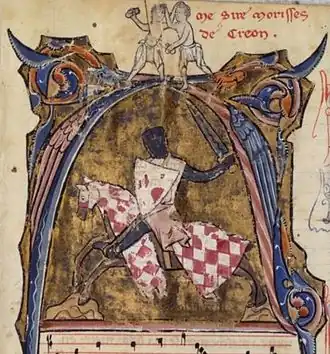 me sire morisses
de Creon .